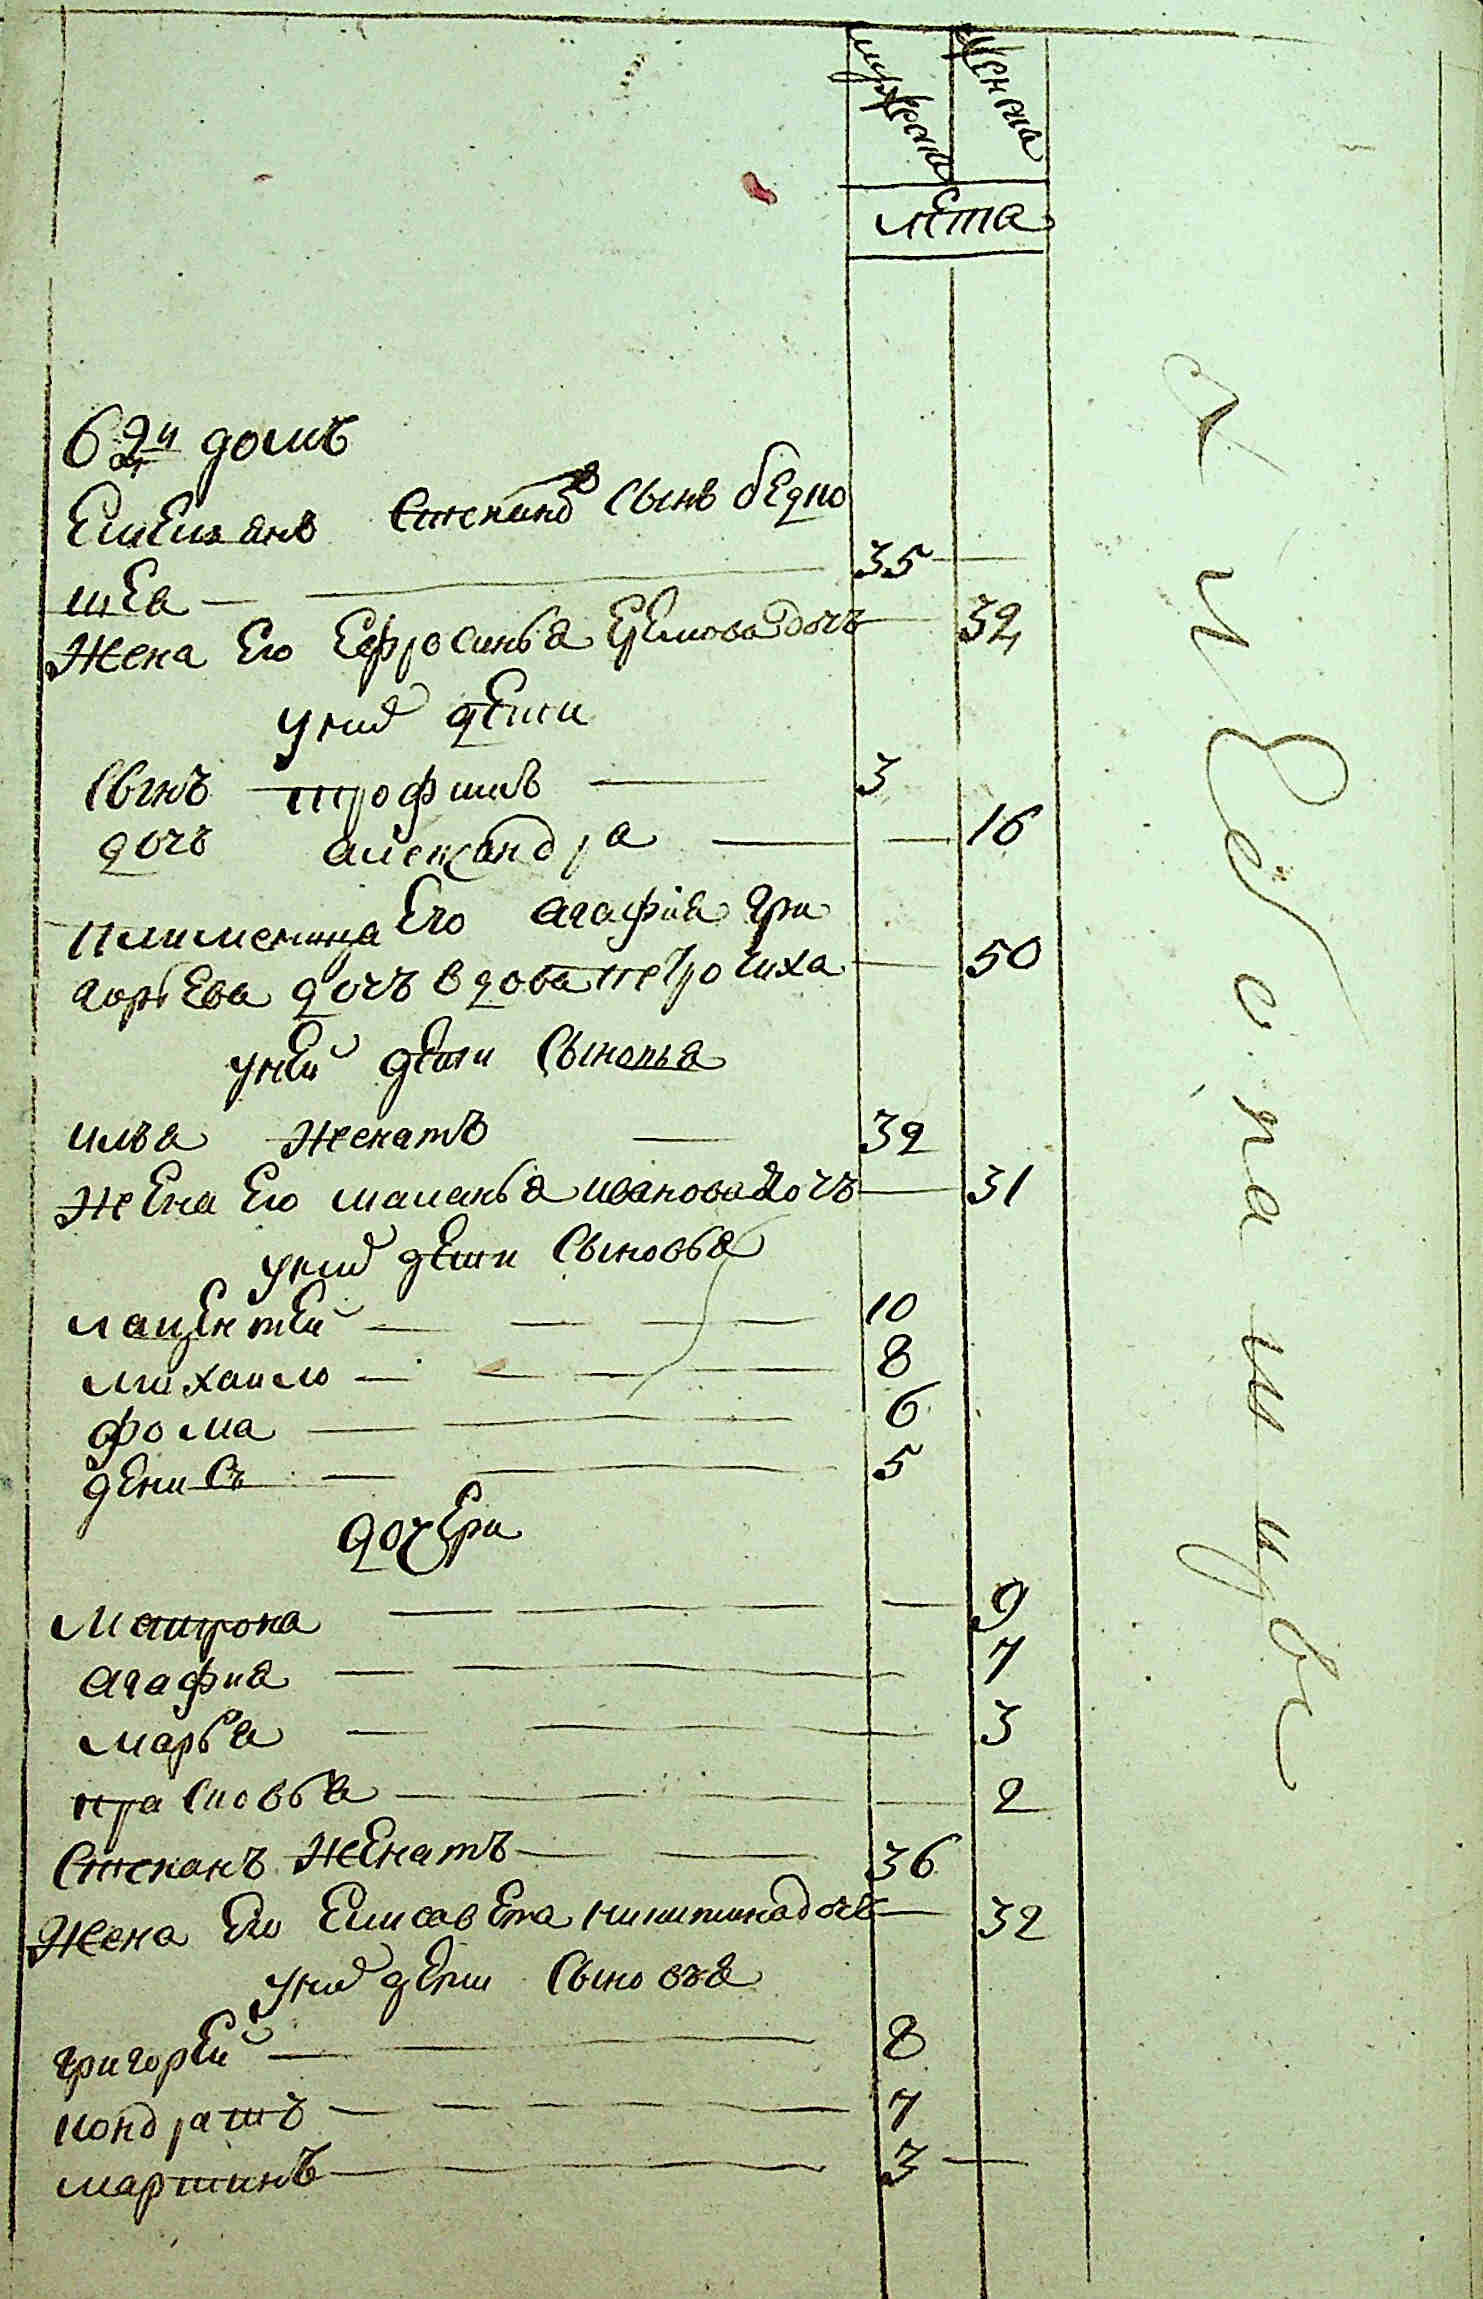 мужеска женска
лета
62й домъ
Емелианъ Степановъ сынъ бедно
шея 35
Жена Его Ефросинья Ефимова дочь 32
у них дети
Сынъ трофимъ 3
дочь александра 16
племеница Его агафия гри
горьева дочь вдова петрочиха 50
у ней дети Сыновья
илья женатъ 32
жена Его маланья иванова дочь 31
у них дети Сыновья
лаврентей 10
михаило 8
фома 6
денисъ 5
дочери
матрона 9
агафия 7
марья 3
прасковья 2
Степанъ женатъ 36
Жена Его Елисавета никитина дочь 32
у них дети Сыновья
григорей 8
кондратъ 7
мартинъ 3